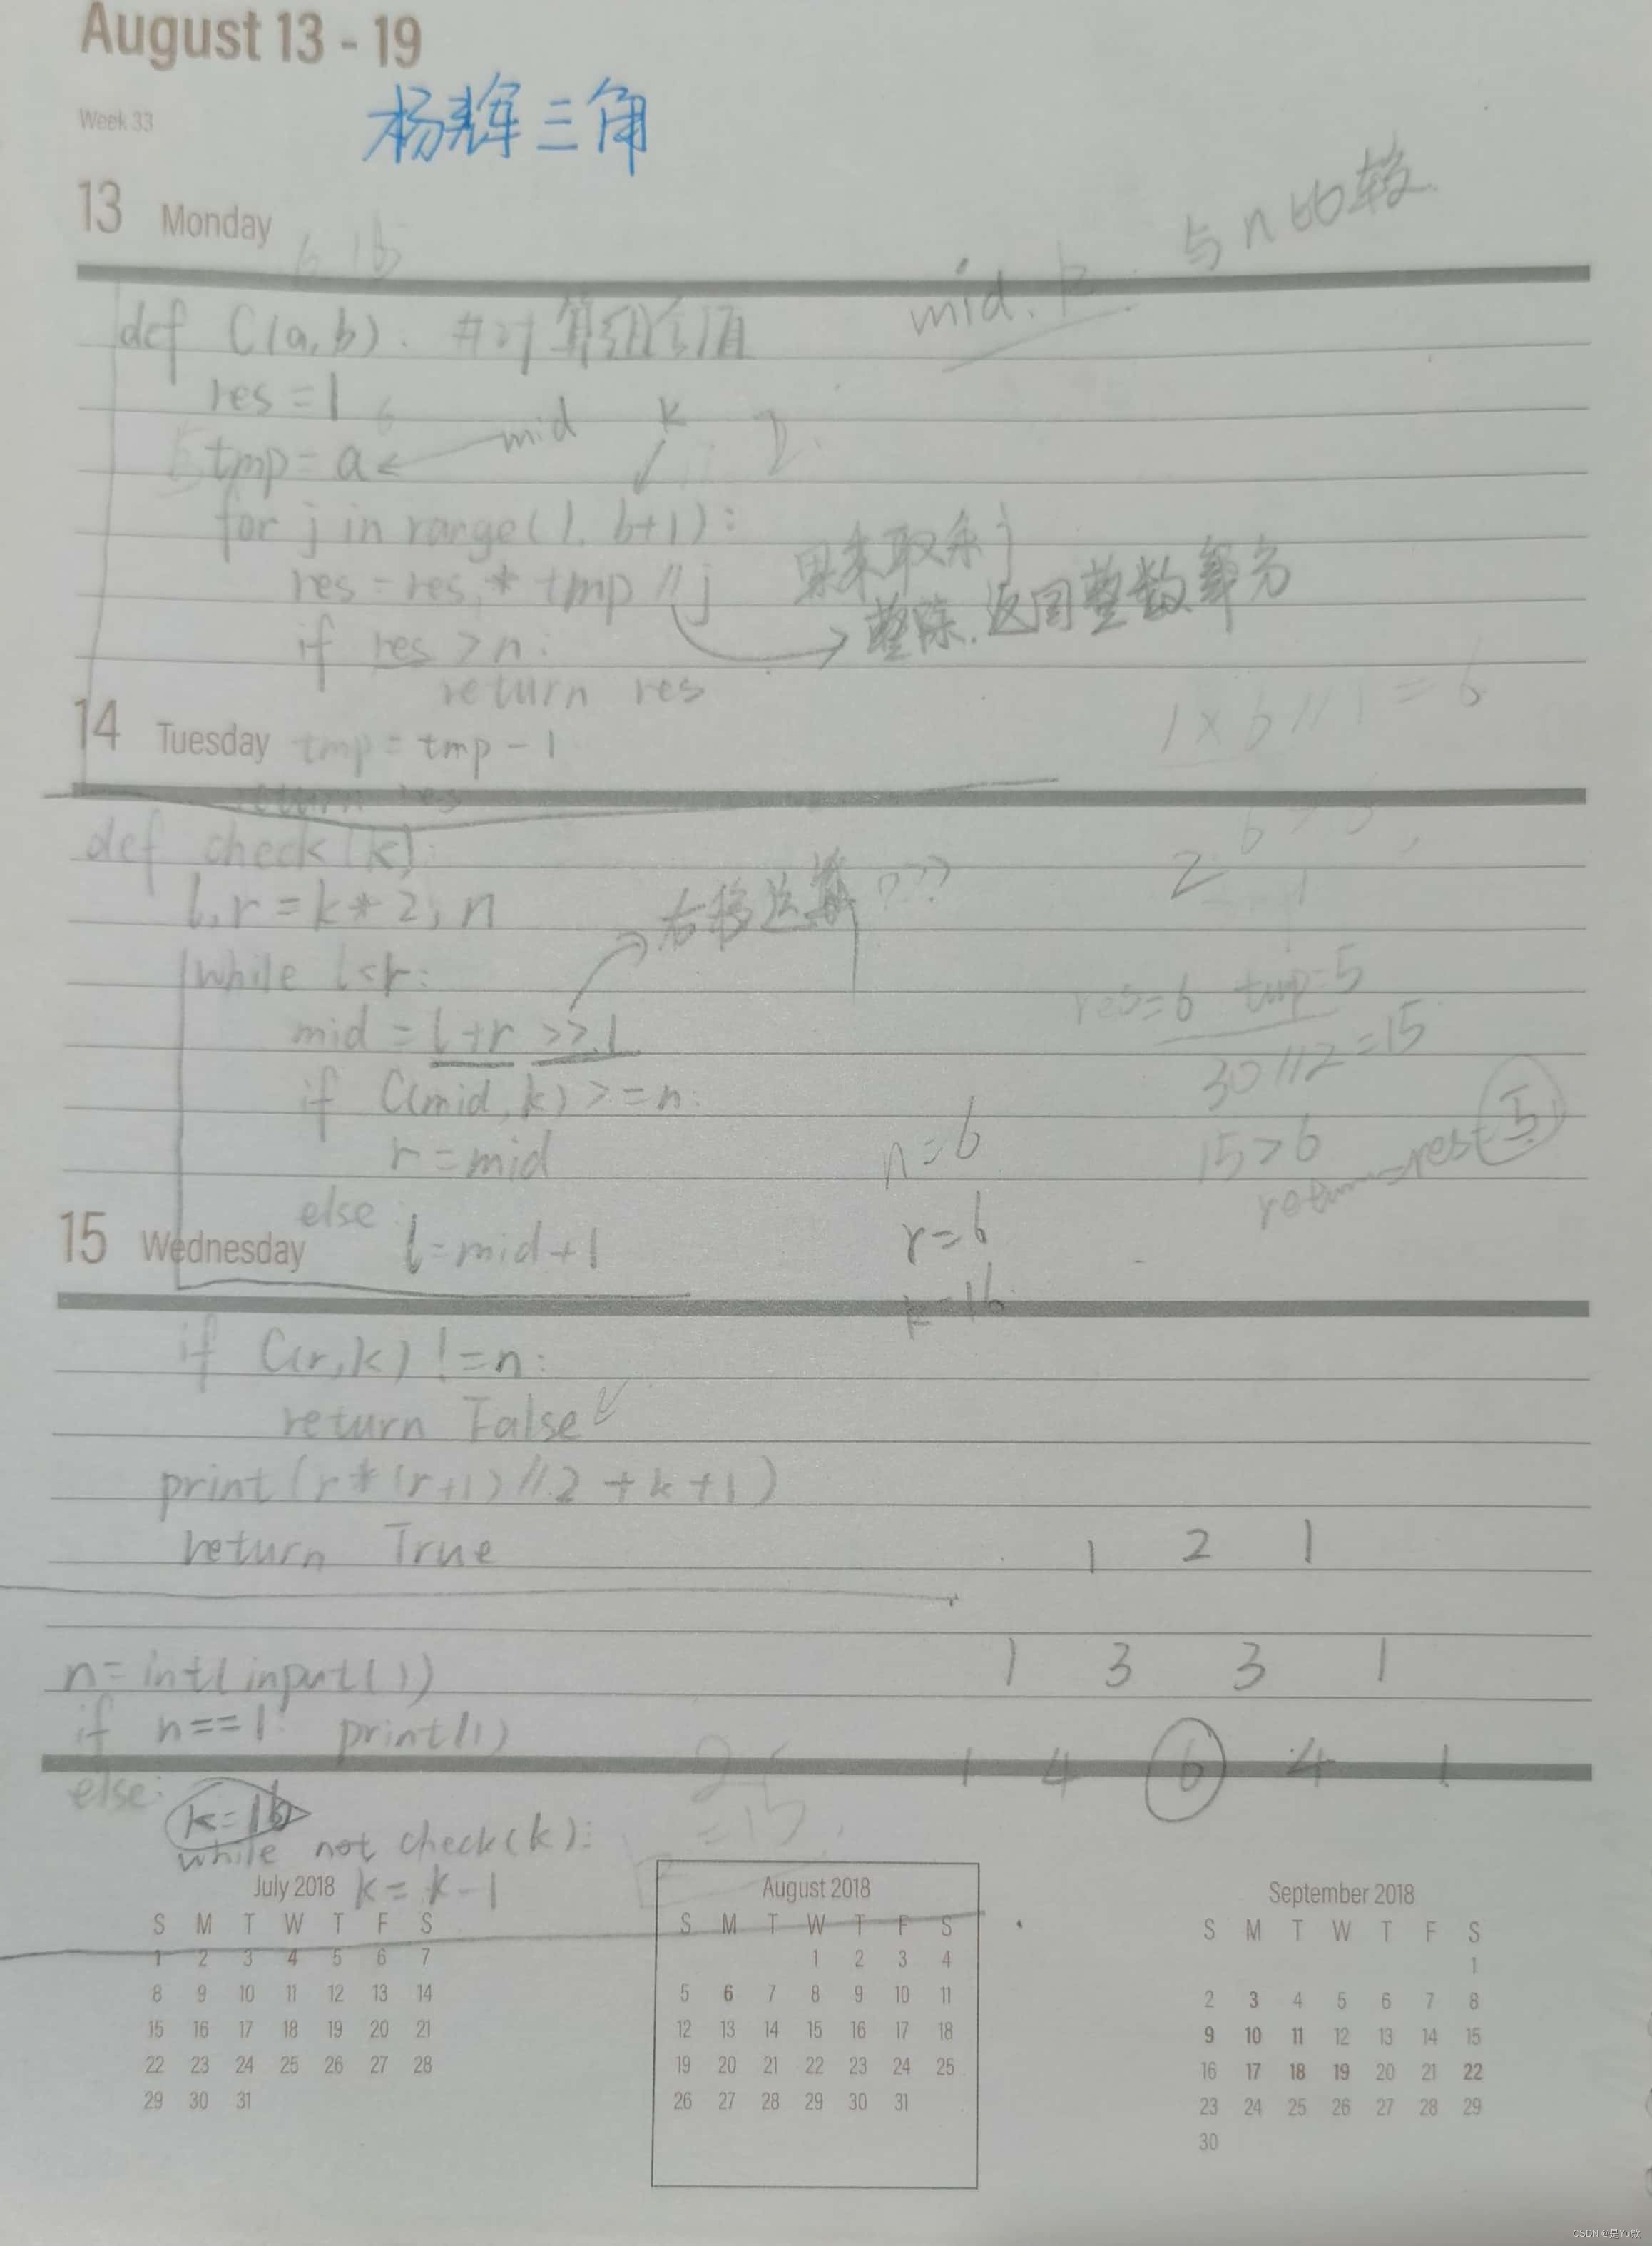 August 13 - 19
Week 33
杨辉三角
13 Monday
与n比较
mid, k
def C(a,b): #计算组合值
res = 1
tmp = a ← mid
k
for j in range(1, b+1):
res = res * tmp // j
整除.返回整数部分
if res > n:
return res
1 x 6 // 1 = 6
14 Tuesday
tmp = tmp - 1
return res
def check(k):
2
l,r = k*2, n
右移运算???
while l<r:
res=6 tmp=5
mid = l+r >>1
30//2=15
if C(mid, k) >= n:
n=6
r = mid
15>6
return res
else:
15 Wednesday
l=mid+1
r=6
k=16
if C(r,k) != n:
return False
print(r*(r+1)//2 + k+1)
return True
1 2 1
n=int(input())
1 3 3 1
if n==1: print(1)
1 4 6 4 1
else:
k=16
=15
while not check(k):
k = k-1
July 2018
S M T W T F S
1 2 3 4 5 6 7
8 9 10 11 12 13 14
15 16 17 18 19 20 21
22 23 24 25 26 27 28
29 30 31
August 2018
S M T W T F S
1 2 3 4
5 6 7 8 9 10 11
12 13 14 15 16 17 18
19 20 21 22 23 24 25
26 27 28 29 30 31
September 2018
S M T W T F S
1
2 3 4 5 6 7 8
9 10 11 12 13 14 15
16 17 18 19 20 21 22
23 24 25 26 27 28 29
30
CSDN @是Yu欸